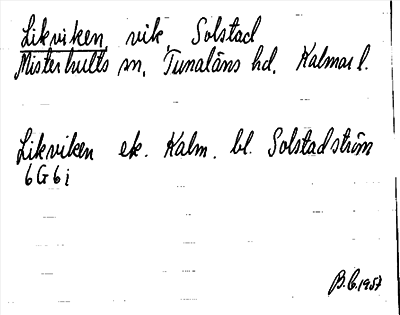 Likviken, vik, Solstad
Misterhults sn, Tunaläns hd, Kalmar l.
Likviken ek. Kalm. bl. Solstadström
6G6i
B.C. 1957